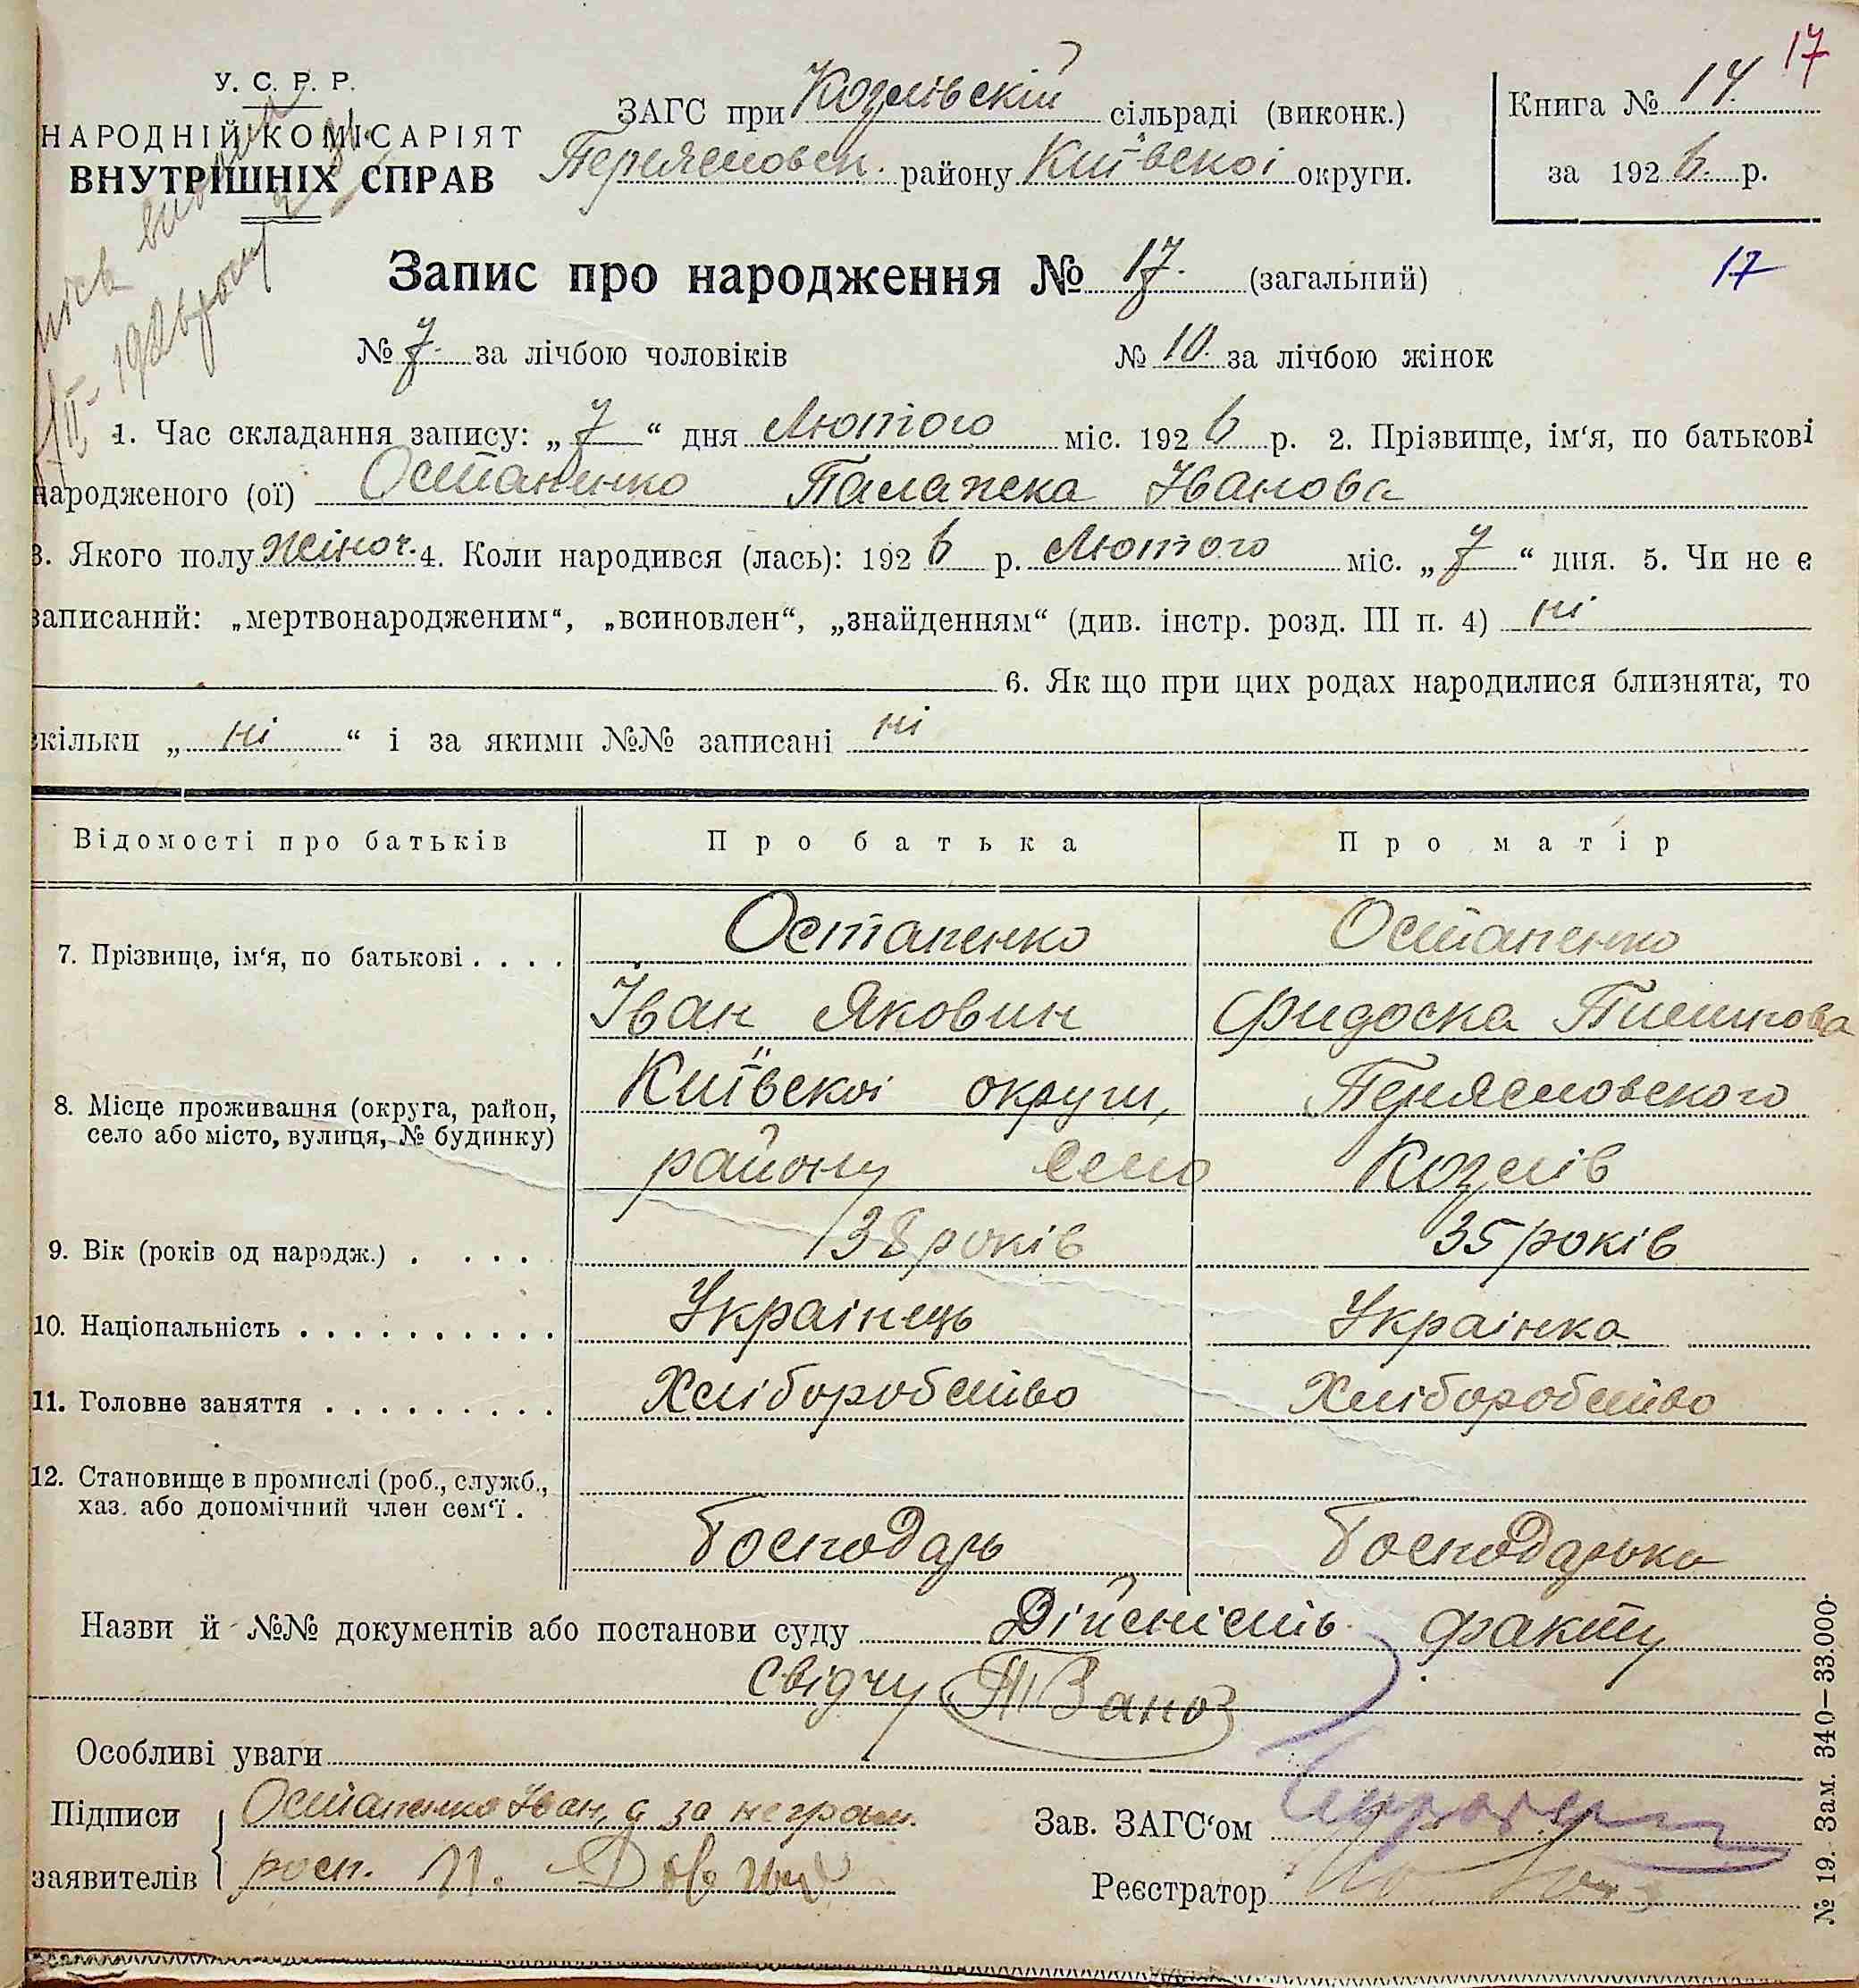 17
У. С. Р. Р.
НАРОДНІЙ КОМІСАРІЯТ
ВНУТРІШНІХ СПРАВ
ЗАГС при Козлівскій сільраді (виконк.)
Переяславск. району Київскоі округи.
Книга № 14.
за 1926. р.
Запис про народження № 17. (загальний)
17
№ 7. за лічбою чоловіків № 10. за лічбою жінок
1. Час складання запису: „7“ дня Лютого міс. 1926 р. 2. Прізвище, ім‘я, по батькові
народженого (ої) Остапенко Палажка Іванова
3. Якого полу Жіноч. 4. Коли народився (лась): 1926 р. Лютого міс. „7“ дня. 5. Чи не є
записаний: „мертвонародженим“, „всиновлен“, „знайденням“ (див. інстр. розд. III п. 4) ні
6. Як що при цих родах народилися близнята, то
скільки „ні“ і за якими №№ записані ні
Відомості про батьків Про батька Про матір
7. Прізвище, ім‘я, по батькові . . . . Остапенко Остапенко
Іван Якович Фидоска
8. Місце проживання (округа, район,
село або місто, вулиця, № будинку)
Київскоі округи, Переяславского
району село Козлів
9. Вік (років од народж.) . . . . 38 років 35 років
10. Національність . . . . . . . . . . . Українець Українка
11. Головне заняття . . . . . . . . . Хліборобство Хліборобство
12. Становище в промислі (роб., служб.,
хаз. або допомічний член сем‘ї .
Господарь Господарька
Назви й №№ документів або постанови суду Дійсність факту
свідчу
Особливі уваги
Підписи Остапенко Іван, а за неграм.
заявителів росп.
Зав. ЗАГС‘ом
Реєстратор
№ 19. Зам. 340—33.000.